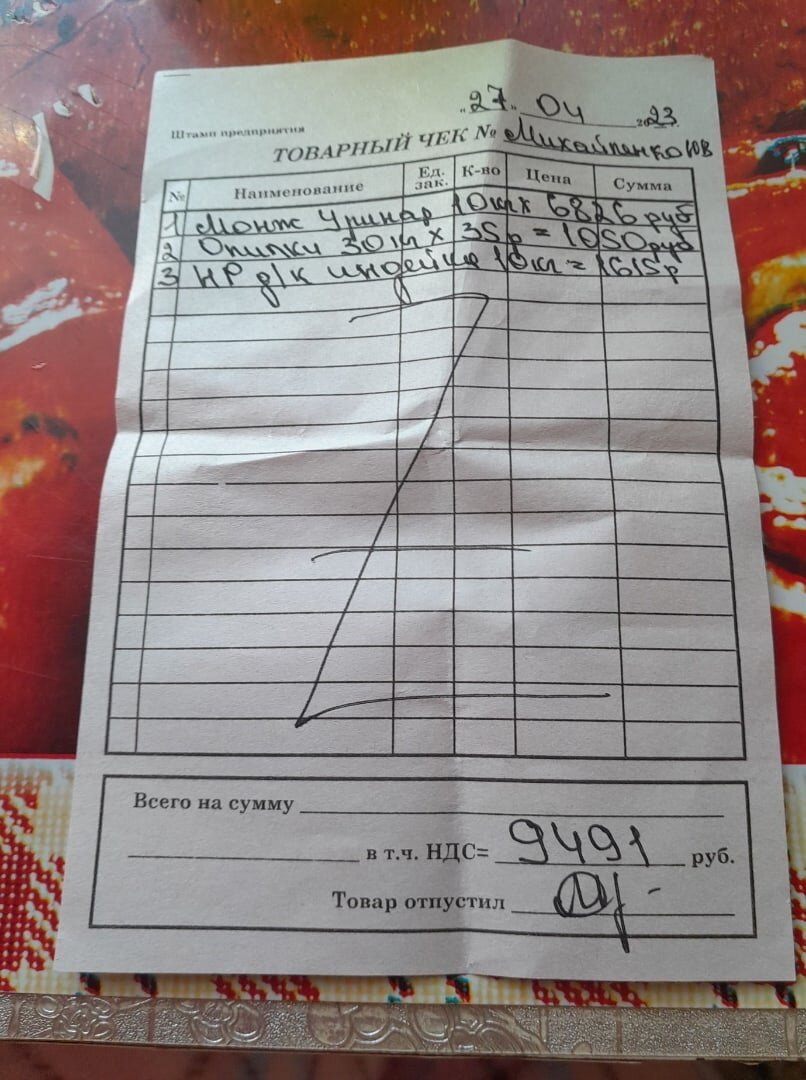 "27" 04 2023
Штамп предприятия
ТОВАРНЫЙ ЧЕК № Михайленко ЮВ
№ Наименование Ед. зак. К-во Цена Сумма
1 Монж Уринар 10кг х 6826 руб
2 Опилки 30кг х 35р = 1050руб
3 НР д/к индейка 10кг = 1615р
Всего на сумму
в т.ч. НДС= 9491 руб.
Товар отпустил